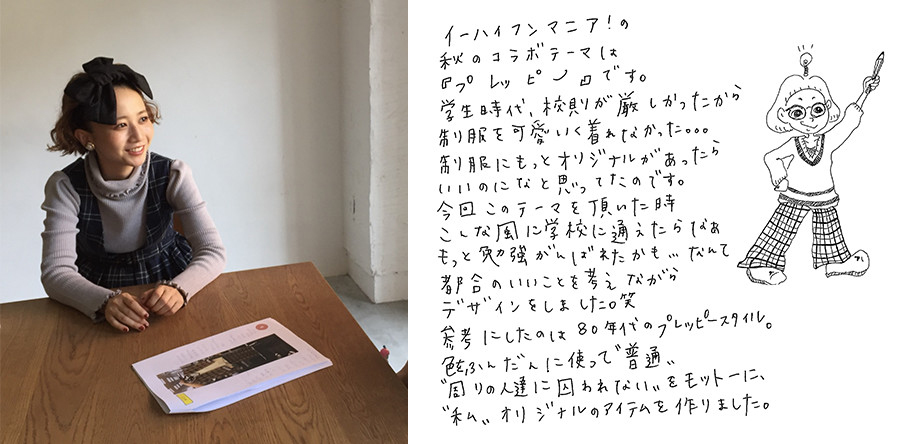 イーハイフンマニア!の
秋のコラボテーマは
『プレッピー』です。
学生時代、校則が厳しかったから
制服を可愛いく着れなかった。。。
制服にもっとオリジナルがあったら
いいのになと思ってたのです。
今回このテーマを頂いた時
こんな風に学校に通えたらなぁ
もっと勉強がんばれたかも…なんて
都合のいいことを考えながら
デザインをしました。笑
参考にしたのは80年代のプレッピースタイル。
色ふんだんに使って〝普通〟
〝周りの人達に囚われない〟をモットーに、
〝私〟オリジナルのアイテムを作りました。